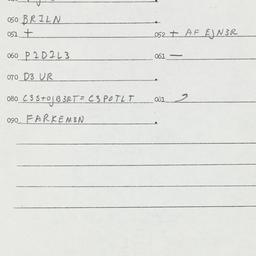 050 BRILN .
051 + 052 + AF EJN3R
060 P2D2L3 061 —
070 D3 UR .
080 C3S+OJB3RT= C3POTLT 081
090 FARKEM3N .